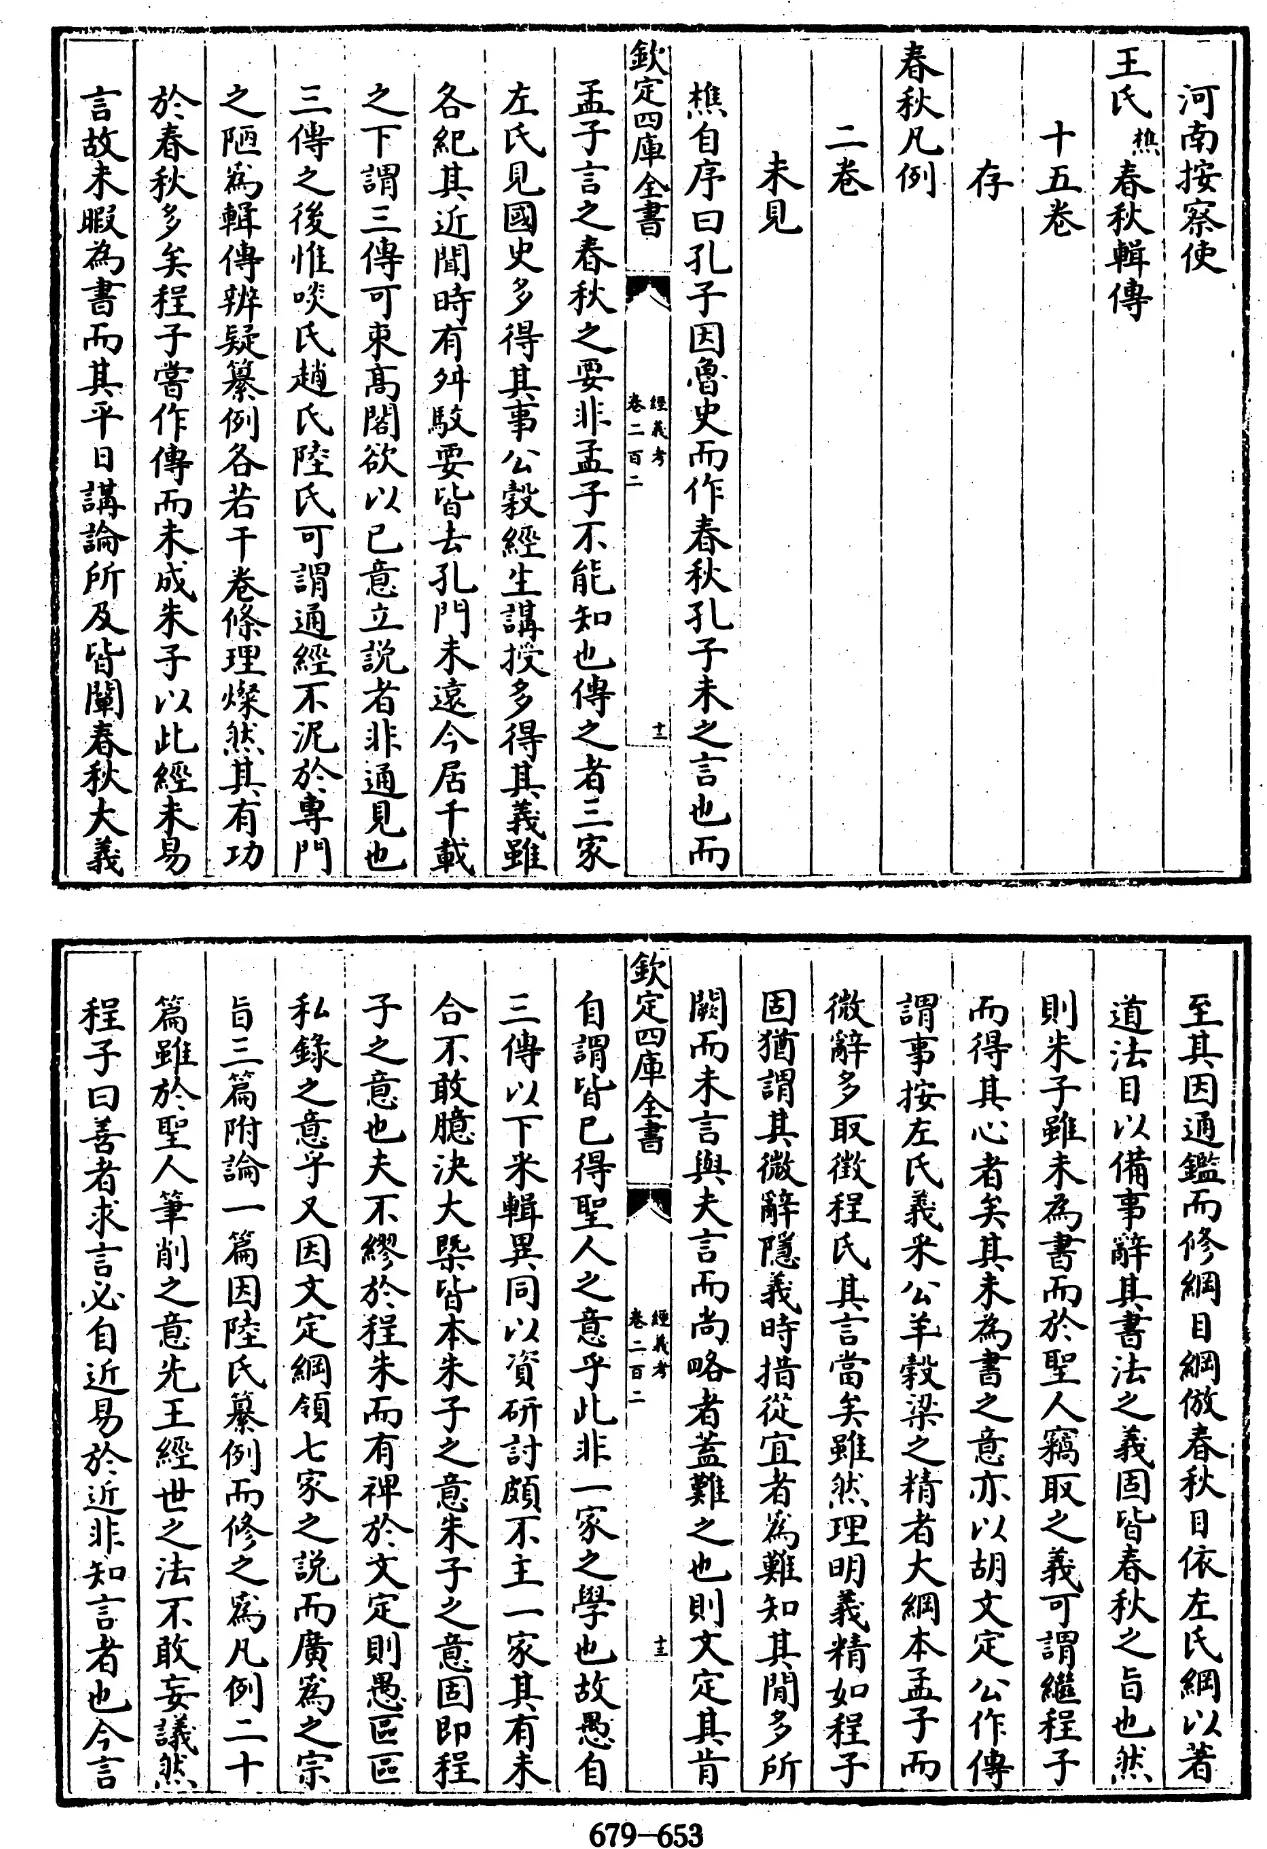 河南按察使
王氏樵春秋輯傳
十五卷
存
春秋凡例
二卷
未見
樵自序曰孔子因魯史而作春秋孔子未之言也而
欽定四庫全書
經義考
卷二百二
十二
孟子言之春秋之要非孟子不能知也傳之者三家
左氏見國史多得其事公穀經生講授多得其義雖
各紀其近聞時有舛駁要皆去孔門未遠今居千載
之下謂三傳可束髙閣欲以已意立説者非通見也
三傳之後惟啖氏趙氏陸氏可謂通經不泥於專門
之陋為輯傳辨疑纂例各若干卷條理燦然其有功
於春秋多矣程子嘗作傳而未成朱子以此經未易
言故未暇為書而其平日講論所及皆闡春秋大義
至其因通鑑而修綱目綱倣春秋目依左氏綱以著
道法目以備事辭其書法之義固皆春秋之旨也然
則朱子雖未為書而於聖人竊取之義可謂繼程子
而得其心者矣其未為書之意亦以胡文定公作傳
謂事按左氏義采公羊穀梁之精者大綱本孟子而
微辭多取徴程氏其言當矣雖然理明義精如程子
固猶謂其微辭隱義時措從宜者為難知其間多所
闕而未言與夫言而尚略者蓋難之也則文定其肯
欽定四庫全書
經義考
卷二百二
十三
自謂皆已得聖人之意乎此非一家之學也故愚自
三傳以下采輯異同以資研討頗不主一家其有未
合不敢臆決大槩皆本朱子之意朱子之意固即程
子之意也夫不繆於程朱而有禆於文定則愚區區
私錄之意乎又因文定綱領七家之説而廣為之宗
旨三篇附論一篇因陸氏纂例而修之為凡例二十
篇雖於聖人筆削之意先王經世之法不敢妄議然
程子曰善者求言必自近易於近非知言者也今言
679-653